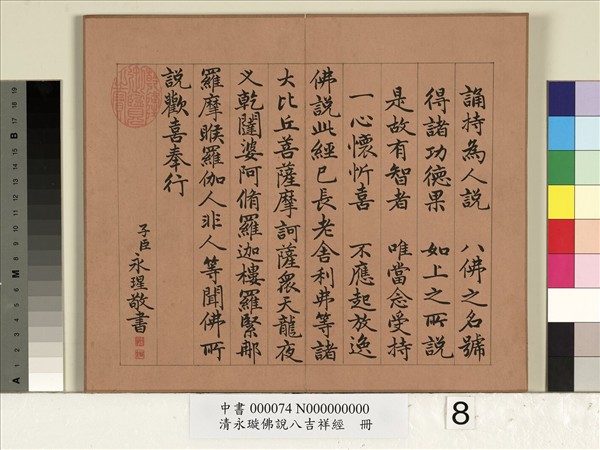 誦持為人説　八佛之名號
得諸功德果　如上之所説
是故有智者　唯當念受持
一心懷忻喜　不應起放逸
佛説此經已長老舍利弗等諸
大比丘菩薩摩訶薩衆天龍夜
叉乾闥婆阿脩羅迦樓羅緊那
羅摩睺羅伽人非人等聞佛所
説歡喜奉行
子臣永瑆敬書
中書 000074 N000000000
清永璇佛說八吉祥經 冊
8